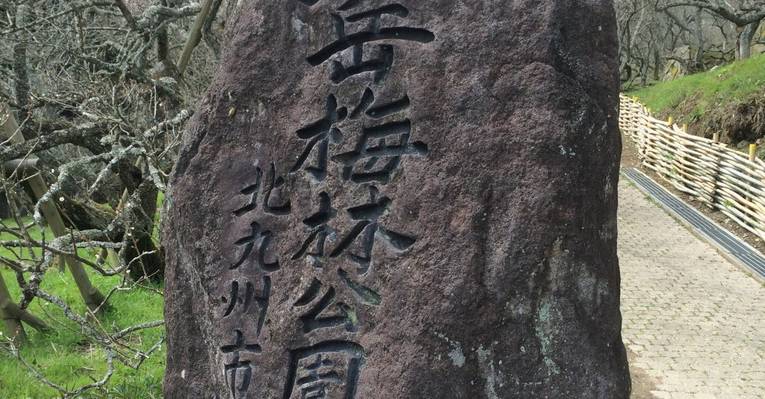 岳梅林公園
北九州市